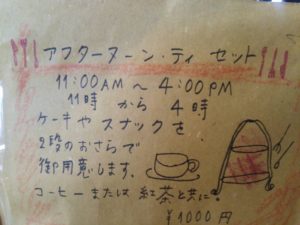 アフターヌーン・ティ セット
11:00AM ~ 4:00PM
11時 から 4時
ケーキや スナックを
2段のおさらで
御用意します。
コーヒーまたは 紅茶と共に。
¥1000円